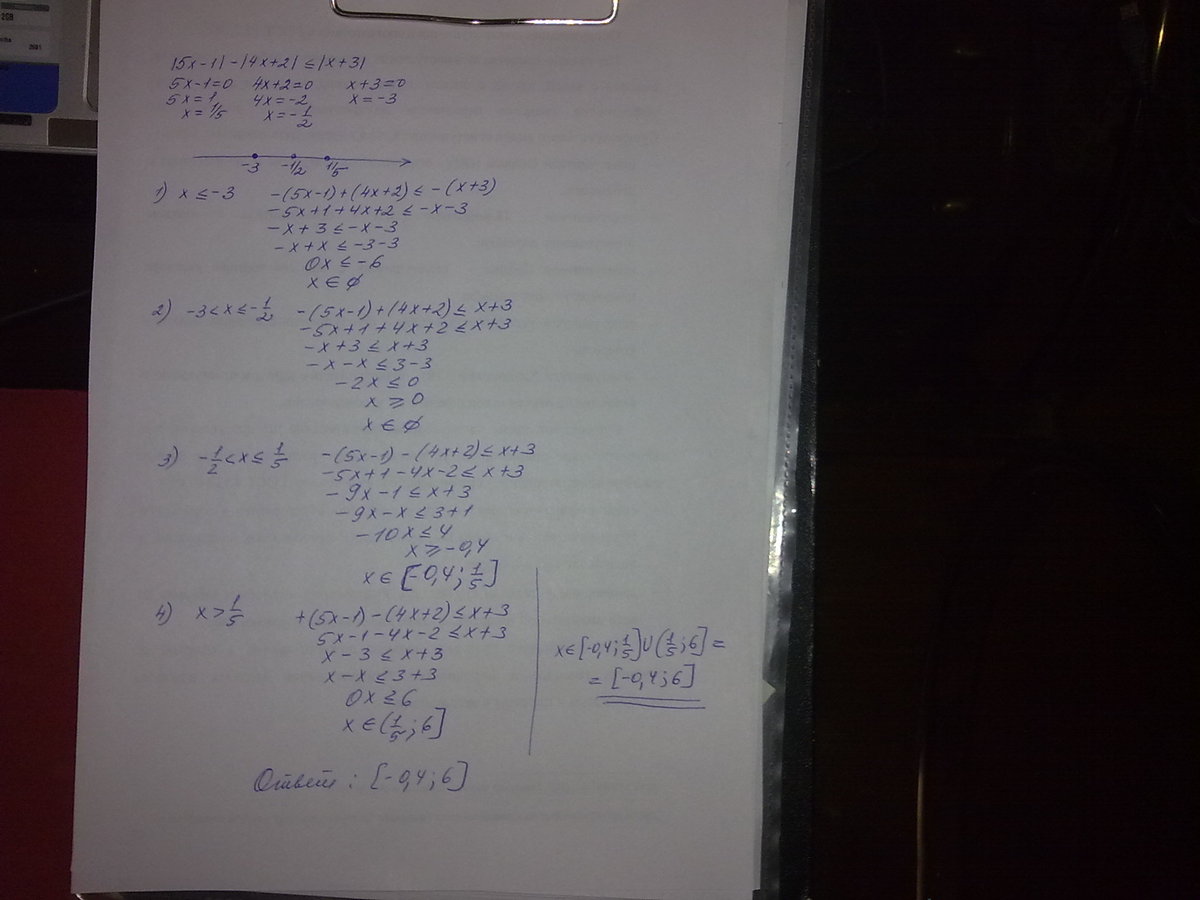 2GB
|5x-1| - |4x+2| ≤ |x+3|
5x-1=0 4x+2=0 x+3=0
5x=1 4x=-2 x=-3
x=1/5 x=-1/2
-3 -1/2 1/5
1) x ≤ -3 -(5x-1)+(4x+2) ≤ -(x+3)
-5x+1+4x+2 ≤ -x-3
-x+3 ≤ -x-3
-x+x ≤ -3-3
0x ≤ -6
x ∈ ∅
2) -3 < x ≤ -1/2 -(5x-1)+(4x+2) ≤ x+3
-5x+1+4x+2 ≤ x+3
-x+3 ≤ x+3
-x-x ≤ 3-3
-2x ≤ 0
x ≥ 0
x ∈ ∅
3) -1/2 < x ≤ 1/5 -(5x-1)-(4x+2) ≤ x+3
-5x+1-4x-2 ≤ x+3
-9x-1 ≤ x+3
-9x-x ≤ 3+1
-10x ≤ 4
x ≥ -0,4
x ∈ [-0,4; 1/5]
4) x > 1/5 +(5x-1)-(4x+2) ≤ x+3
5x-1-4x-2 ≤ x+3
x-3 ≤ x+3
x-x ≤ 3+3
0x ≤ 6
x ∈ (1/5; 6]
x ∈ [-0,4; 1/5] U (1/5; 6] =
= [-0,4; 6]
Ответ: [-0,4; 6]